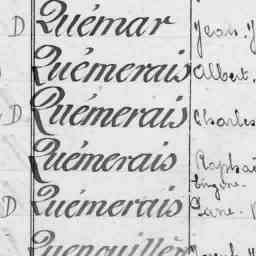 D Quémar Jean. J
Quémerais Albert.
D Quémerais Charles
Quémerais Rapha
Eugène.
D Quémerais
Quenouillè Joseph